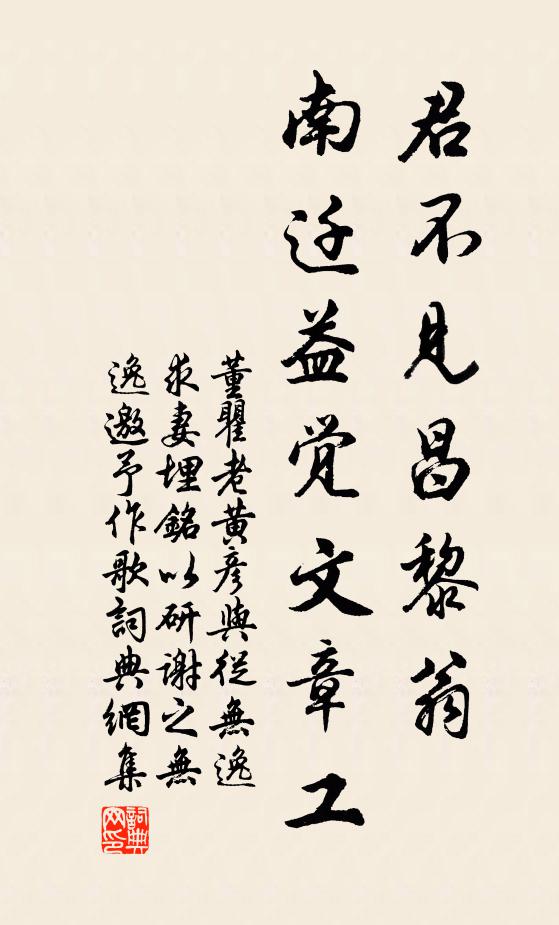 君不見昌黎翁
南迁益觉文章工
董瞿老黃彥輿從無逸
求妻埋銘以研謝之無
逸邀予作歌詞典網集
詞典網印